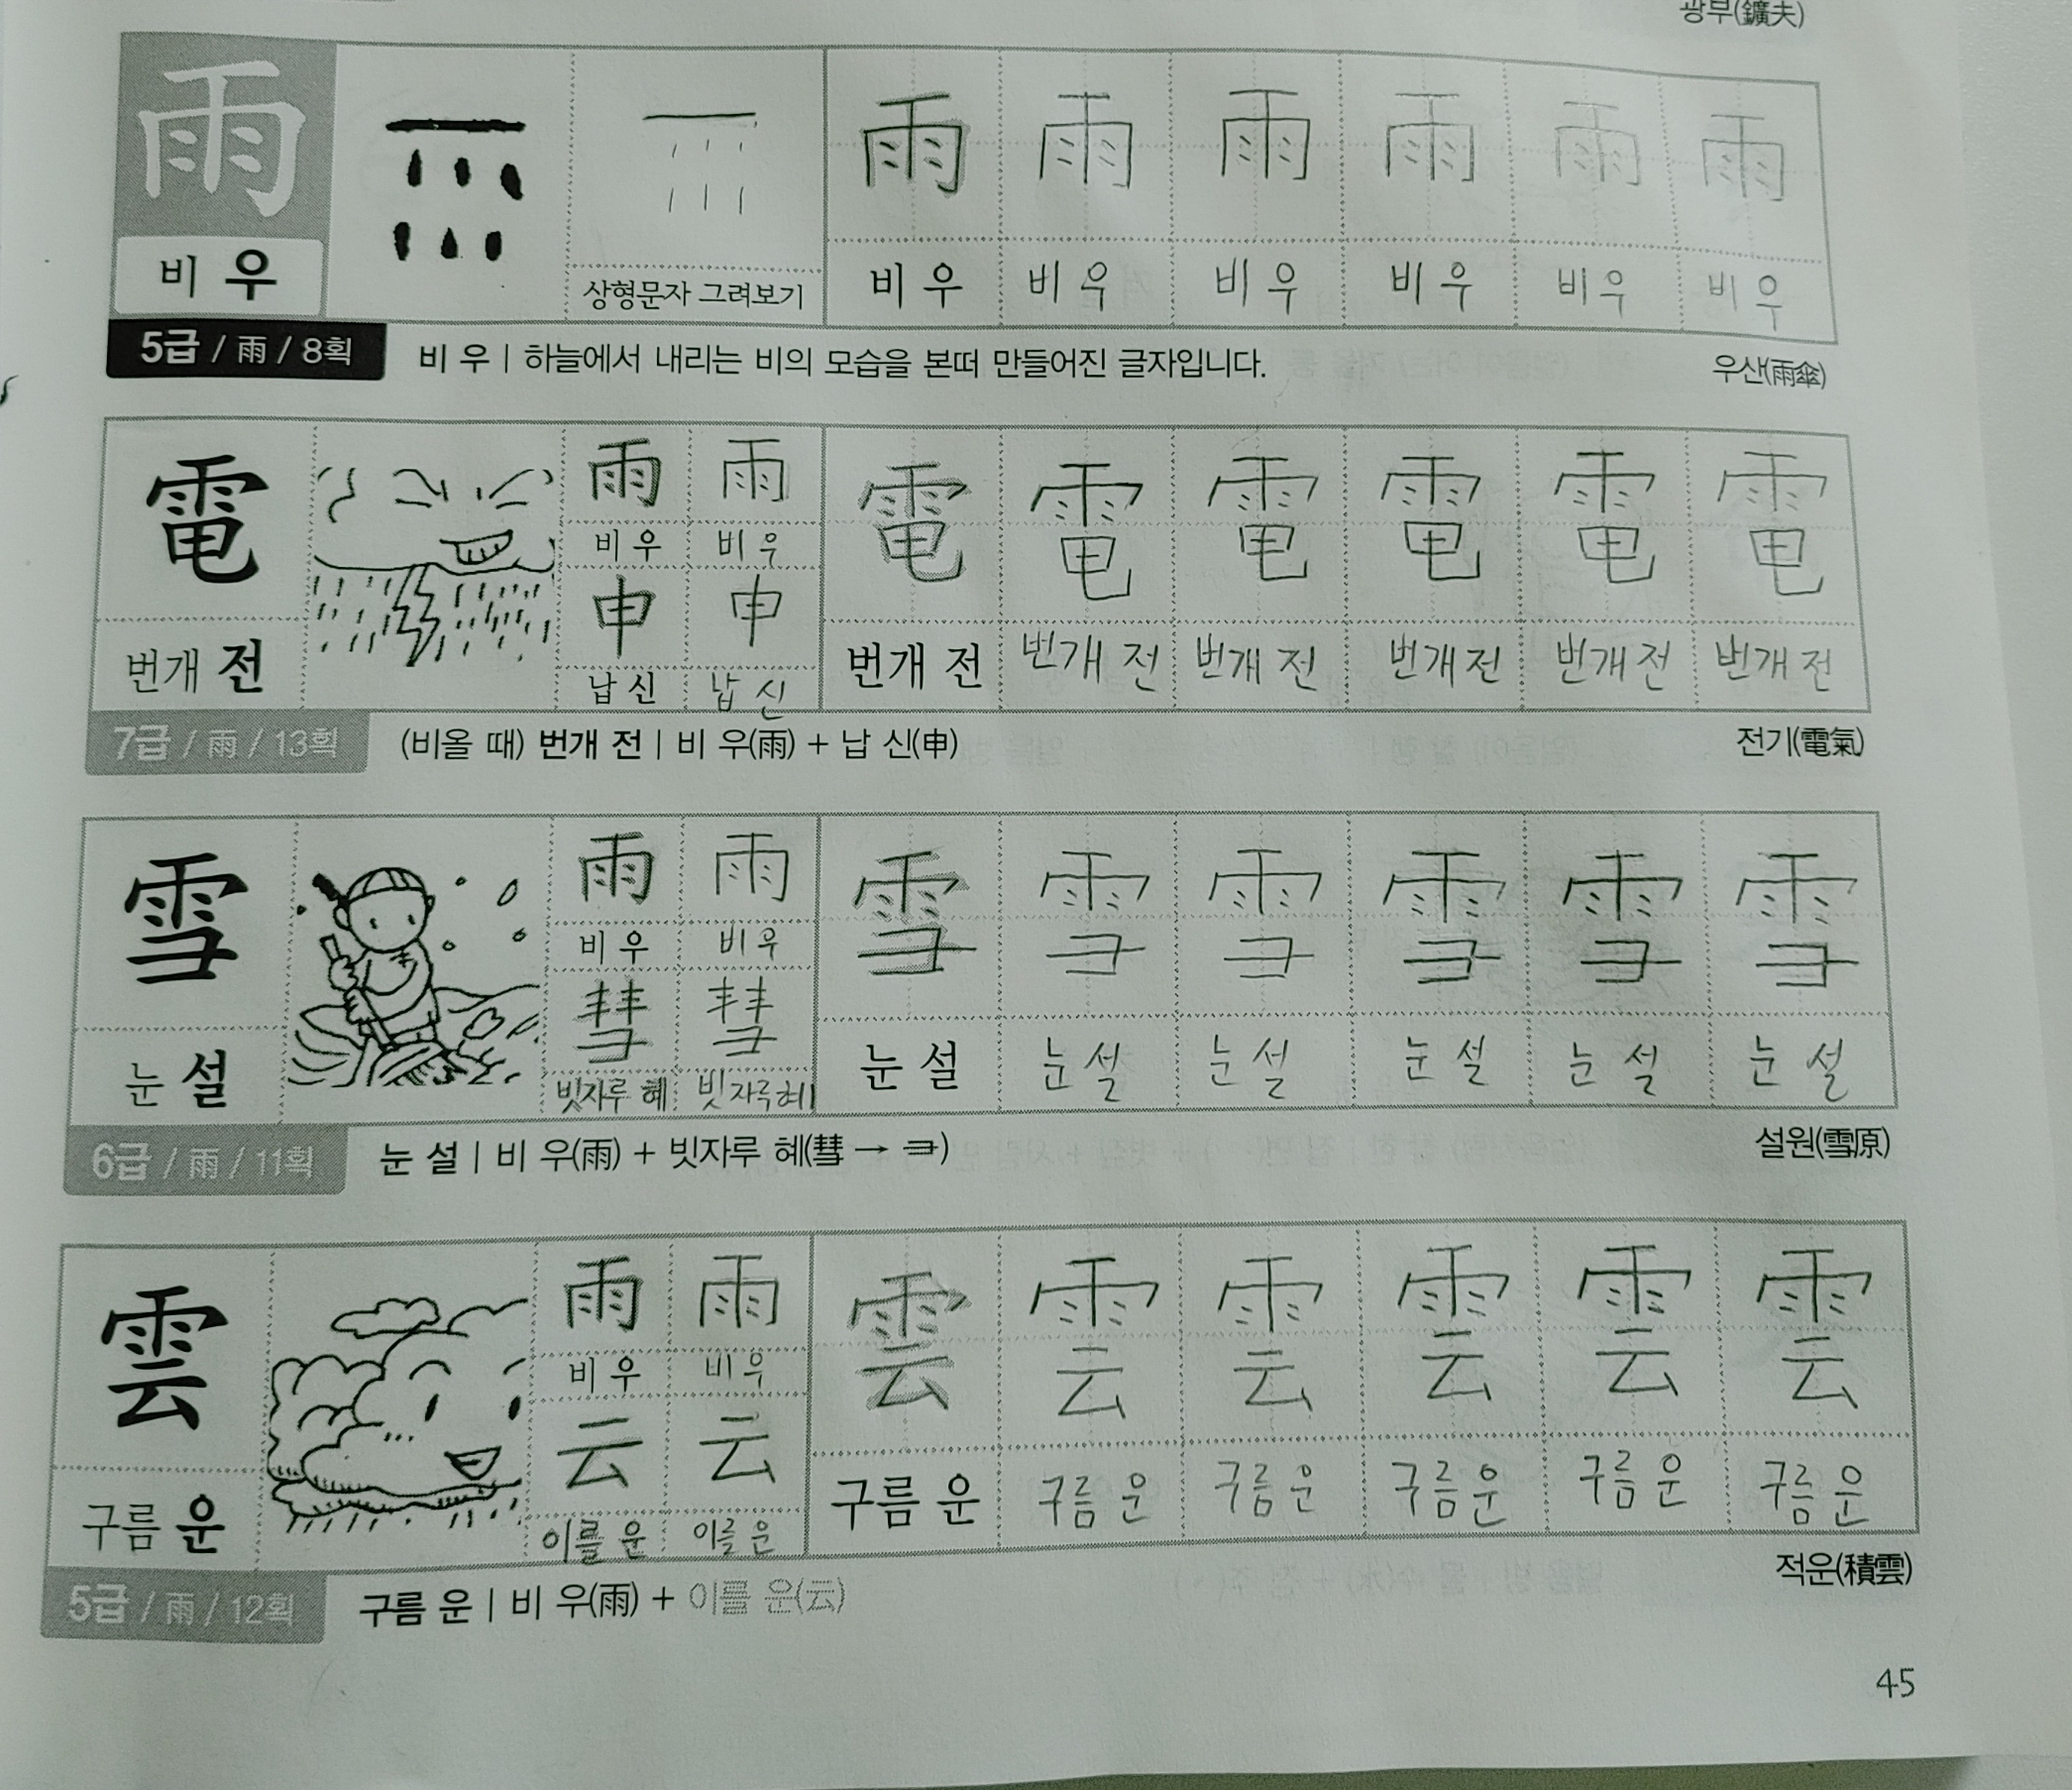 광부(鑛夫)
雨 雨 雨 雨 雨 雨 雨
비 우 상형문자 그려보기 비 우 비 우 비 우 비 우 비 우 비 우
5급 / 雨 / 8획 비 우 | 하늘에서 내리는 비의 모습을 본떠 만들어진 글자입니다. 우산(雨傘)
電 雨 雨 電 電 電 電 電 電
비 우 비 우
申 申
번개 전 납 신 납 신 번개 전 번개 전 번개 전 번개 전 번개 전 번개 전
7급 / 雨 / 13획 (비올 때) 번개 전 | 비 우(雨) + 납 신(申) 전기(電氣)
雪 雨 雨 雪 雪 雪 雪 雪 雪
비 우 비 우
彗 彗
눈 설 빗자루 혜 빗자루 혜 눈 설 눈 설 눈 설 눈 설 눈 설 눈 설
6급 / 雨 / 11획 눈 설 | 비 우(雨) + 빗자루 혜(彗 → ⺕) 설원(雪原)
雲 雨 雨 雲 雲 雲 雲 雲 雲
비 우 비 우
云 云
구름 운 이를 운 이를 운 구름 운 구름 운 구름 운 구름 운 구름 운 구름 운
5급 / 雨 / 12획 구름 운 | 비 우(雨) + 이를 운(云) 적운(積雲)
45